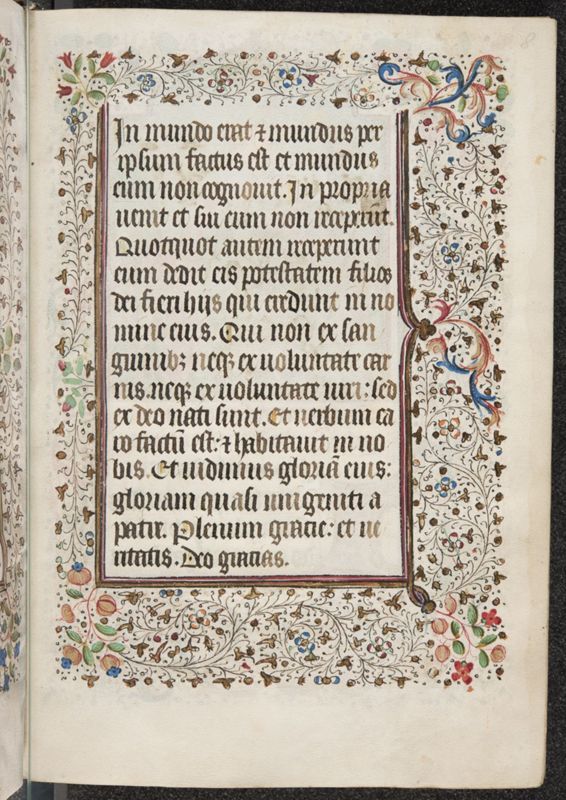 8
In mundo erat ⁊ mundus per
ipsum factus est et mundus
eum non cognouit. In propria
uenit et sui eum non receperūt.
Quotquot autem receperunt
eum dedit eis potestatem filios
dei fieri hijs qui credunt in no
mine eius. Qui non ex san
guinibꝫ neqꝫ ex uoluntate car
nis. neqꝫ ex uoluntate uiri: sed
ex deo nati sunt. Et uerbum ca
ro factū est: ⁊ habitauit in no
bis. Et uidimus gloriā eius:
gloriam quasi unigeniti a
patre. Plenum gracie: et ue
ritatis. Deo gracias.